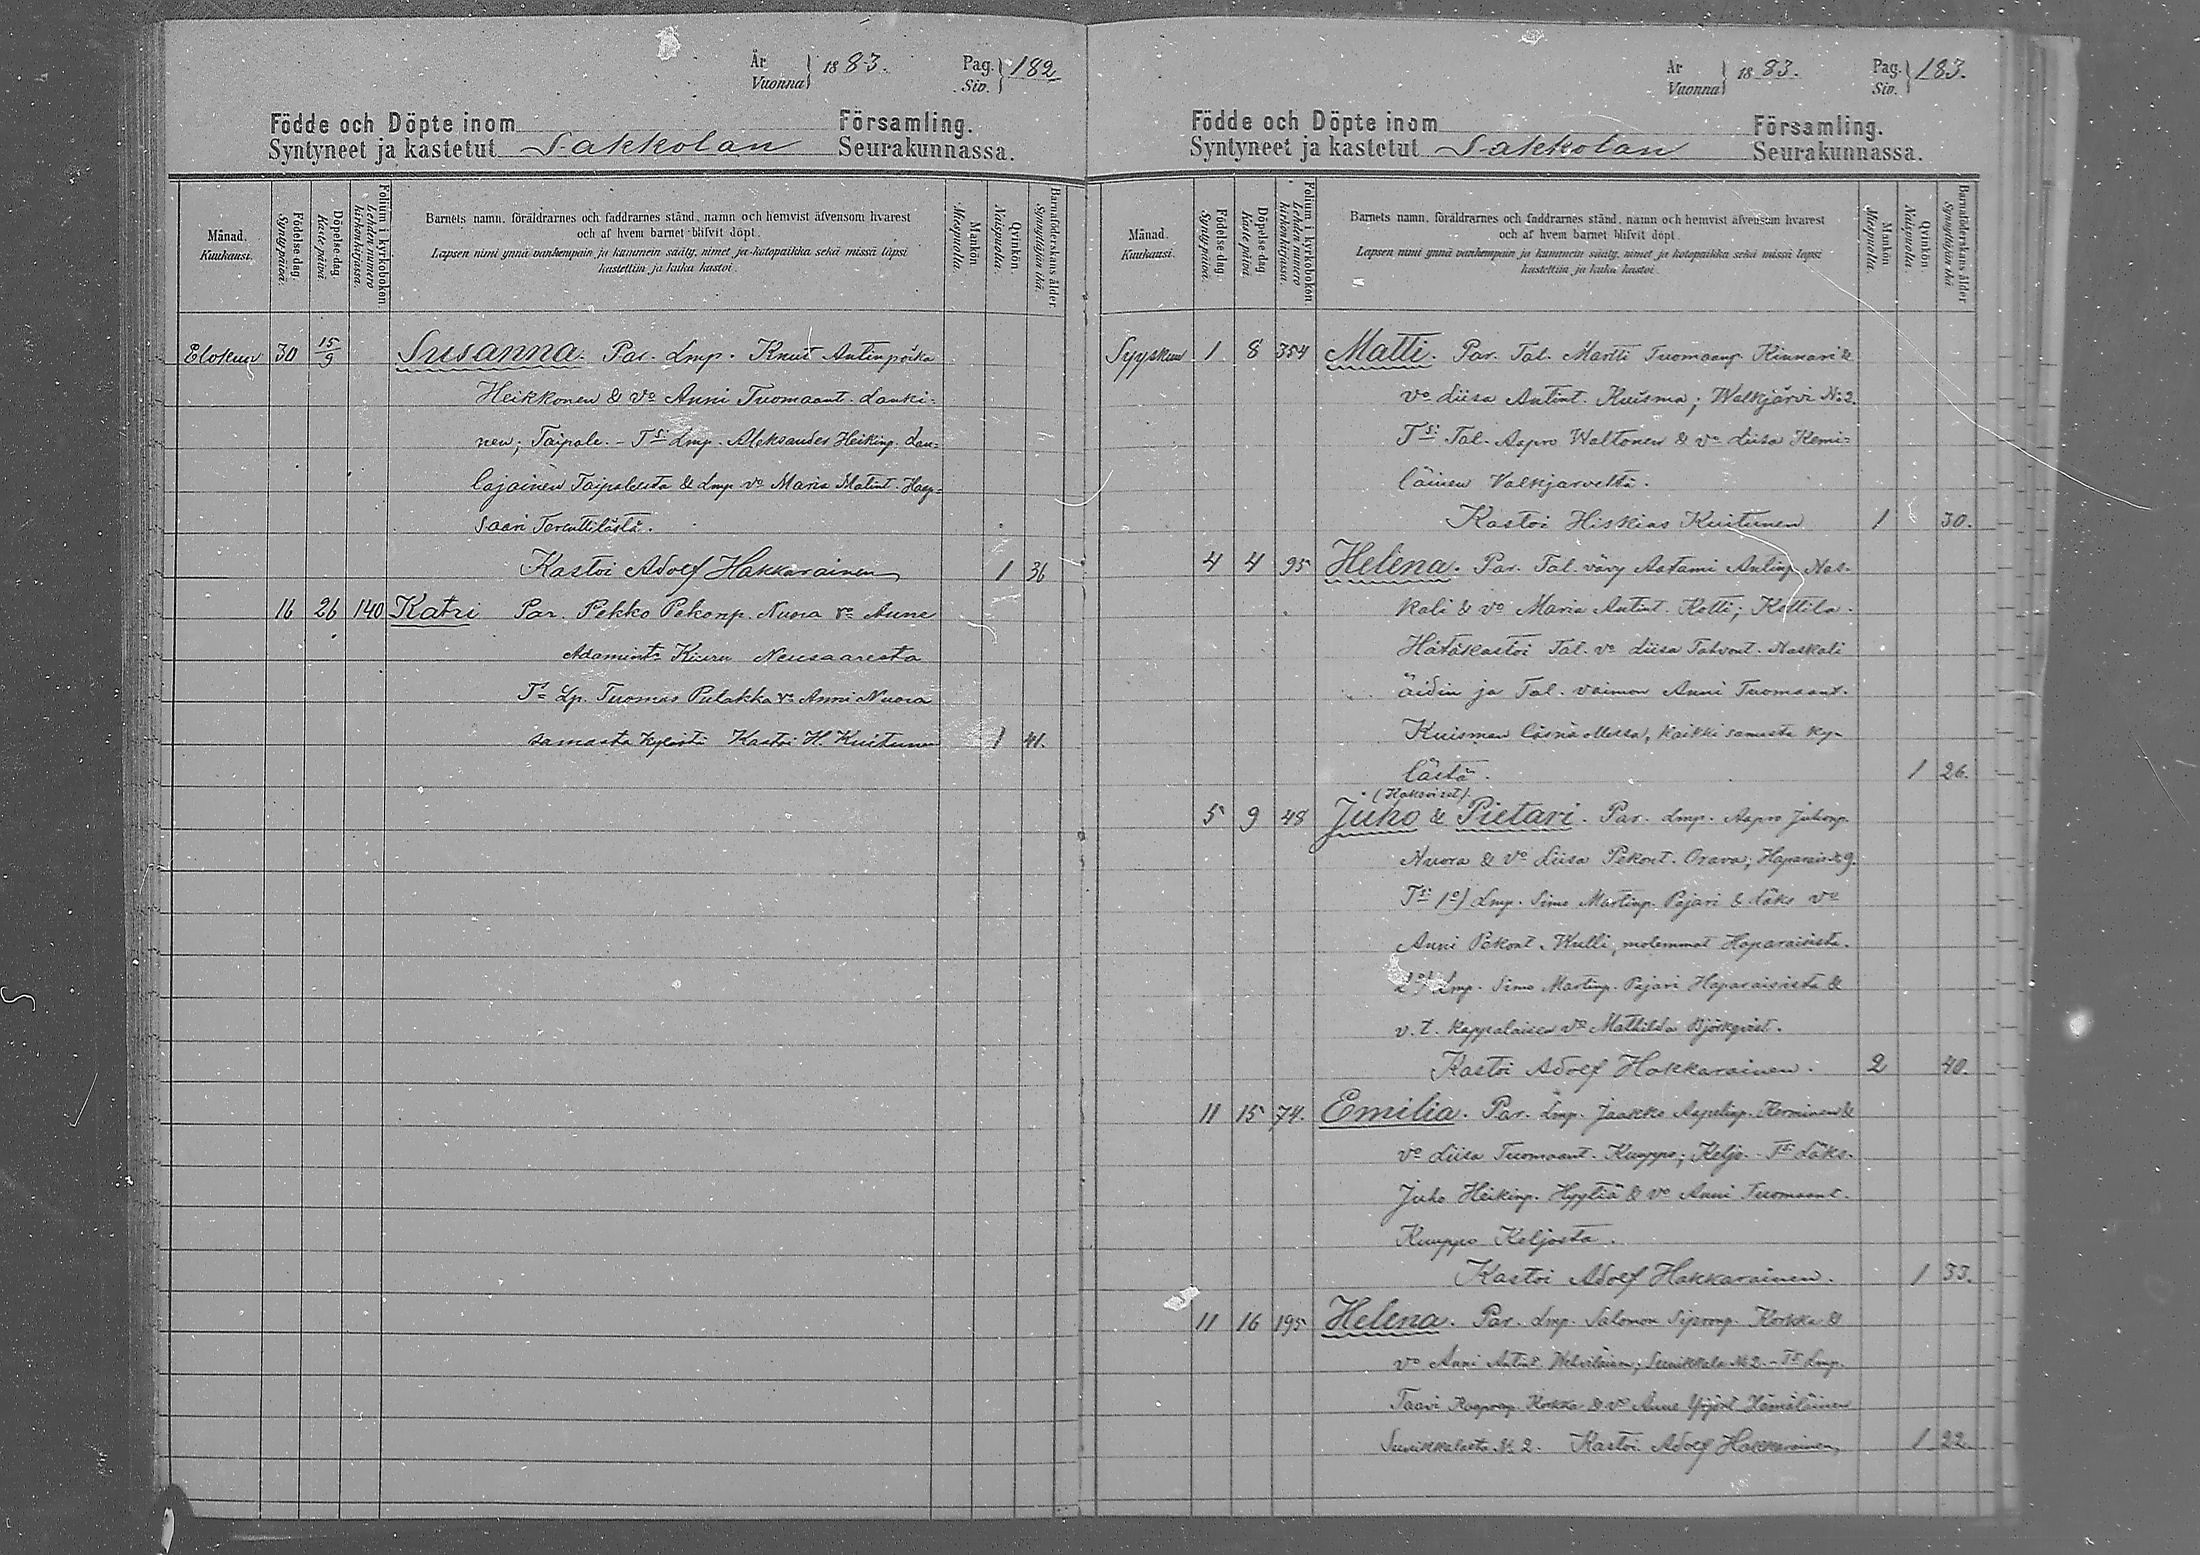 År
Vuonna } 1883.
Pag.
Siv. } 182
Födde och Döpte inom Församling.
Syntyneet ja kastetut Sakkolan Seurakunnassa.
Månad.
Kuukausi.
Födelse dag.
Syntypäivä.
Döpelse dag.
Kaste päivä.
Folium i kyrkoboken
Lehden numero kirkonkirjassa.
Barnets namn, föräldrarnes och faddrarnes stånd, namn och hemvist äfvensom hvarest
och af hvem barnet blifvit döpt.
Lapsen nimi ynnä vanhempain ja kummein sääty, nimet ja kotopaikka sekä missä lapsi
kastettiin ja kuka kastoi.
Mankön
Miespuolia.
Qvinkön
Naispuolia.
Barnaföderskans ålder
Synnyttäjän ikä.
Elokuu 30 15/9 Susanna. Par. Lmp. Knut Antinpoika
Heikkonen & vo Anni Tuomaant. Lanki-
nen; Taipale. - Tsi Lmp. Aleksander Heikinp. Lau-
lajainen Taipaleesta & Lmp. vo Maria Matint. Haap-
saari Terenttilästä.
Kastoi Adolf Hakkarainen 1 36
16 26 140 Katri Par. Pekko Pekonp. Nuora vo Anna
Adamint. Kiuru Neusaaresta
Ts Lp. Tuomas Pulakka vo Anni Nuora
samasta kylästä Kastoi H. Kuitunen 1 41.
År
Vuonna } 1883.
Pag.
Siv. } 183.
Födde och Döpte inom Församling.
Syntyneet ja kastetut Sakkolan Seurakunnassa.
Månad.
Kuukausi.
Födelse dag.
Syntypäivä.
Döpelse dag
Kaste päivä
Folium i kyrkoboken
Lehden numero kirkonkirjassa.
Barnets namn, föräldrarnes och faddrarnes stånd, namn och hemvist äfvensom hvarest
och af hvem barnet blifvit döpt.
Lapsen nimi ynnä vanhempain ja kummein sääty, nimet ja kotopaikka sekä missä lapsi
kastettiin ja kuka kastoi.
Mankön
Miespuolia.
Qvinkön
Naispuolia.
Barnaföderskans ålder
Synnyttäjän ikä.
Syyskuu 1 8 354 Matti. Par. Tal. Martti Tuomaanp. Kinnari &
vo Liisa Antint. Kuisma; Walkjärvi No 2.
Tsi Tal. Aapro Waltonen & vo Liisa Hemi-
läinen Valkjarveltä.
Kastoi Hiskias Kuitunen 1 30.
4 4 95 Helena. Par. Tal. vävy Aatami Antinp. Nas-
kali & vo Maria Antint. Kotti; Kottila.
Hätäkastoi Tal. vo Liisa Tahvont. Naskali
äidin ja Tal. vaimon Anni Tuomaant.
Kuisman läsnä ollessa, kaikki samasta ky-
lästä. 1 26.
(Kaksoiset).
5 9 48 Juho & Pietari. Par. Lmp. Aapro Juhonp.
Nuora & vo Liisa Pekont. Orava; Haparais No 9.
Tsi 1o) Lmp. Simo Martinp. Pajari & Läks vo
Anni Pekont. Kulli, molemmat Haparaisista.
2o) Lmp. Simo Martinp. Pajari Haparaisista &
v.t. kappalaisen vo Mathilda Björkqvist.
Kastoi Adolf Hakkarainen. 2 40.
11 15 74. Emilia. Par. Lmp. Jaakko Aapelinp. Herminen &
vo Liisa Tuomaant. Kuuppo; Keljo. - Ts Läks.
Juho Heikinp. Hyytiä & vo Anni Tuomaant.
Kuuppo Keljosta.
Kastoi Adolf Hakkarainen. 1 33.
11 16 195 Helena. Par. Lmp. Salomon Sipronp. Korkka &
vo Anni Antint. ; Suvikkala No 2. - Ts Lmp.
Taavi Korkka & vo Anna Yrjönt. Hämäläinen
No 2. Kastoi Adolf Hakkarainen, 1 22.